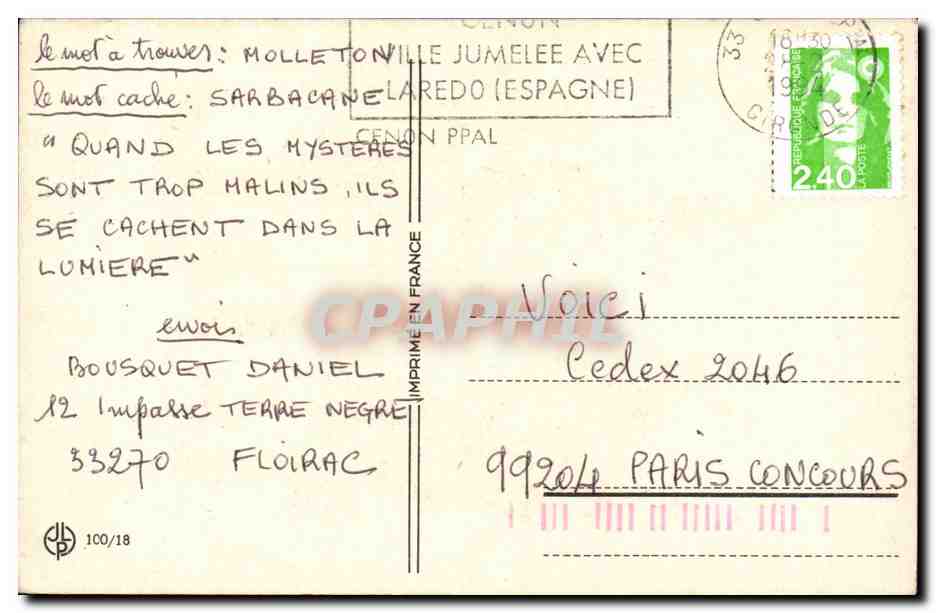 le mot à trouver : MOLLETON
le mot caché : SARBACANE
" QUAND LES MYSTERES
SONT TROP MALINS, ILS
SE CACHENT DANS LA
LUMIERE "
envois
BOUSQUET DANIEL
12 Impasse TERRE NEGRE
33270 FLOIRAC
JLP
100/18
CENON
VILLE JUMELEE AVEC
LAREDO (ESPAGNE)
CENON PPAL
33
GIRONDE
REPUBLIQUE FRANÇAISE
2,40
LA POSTE
IMPRIMÉ EN FRANCE
CPAPHIL
VOICI
Cedex 2046
99204 PARIS CONCOURS